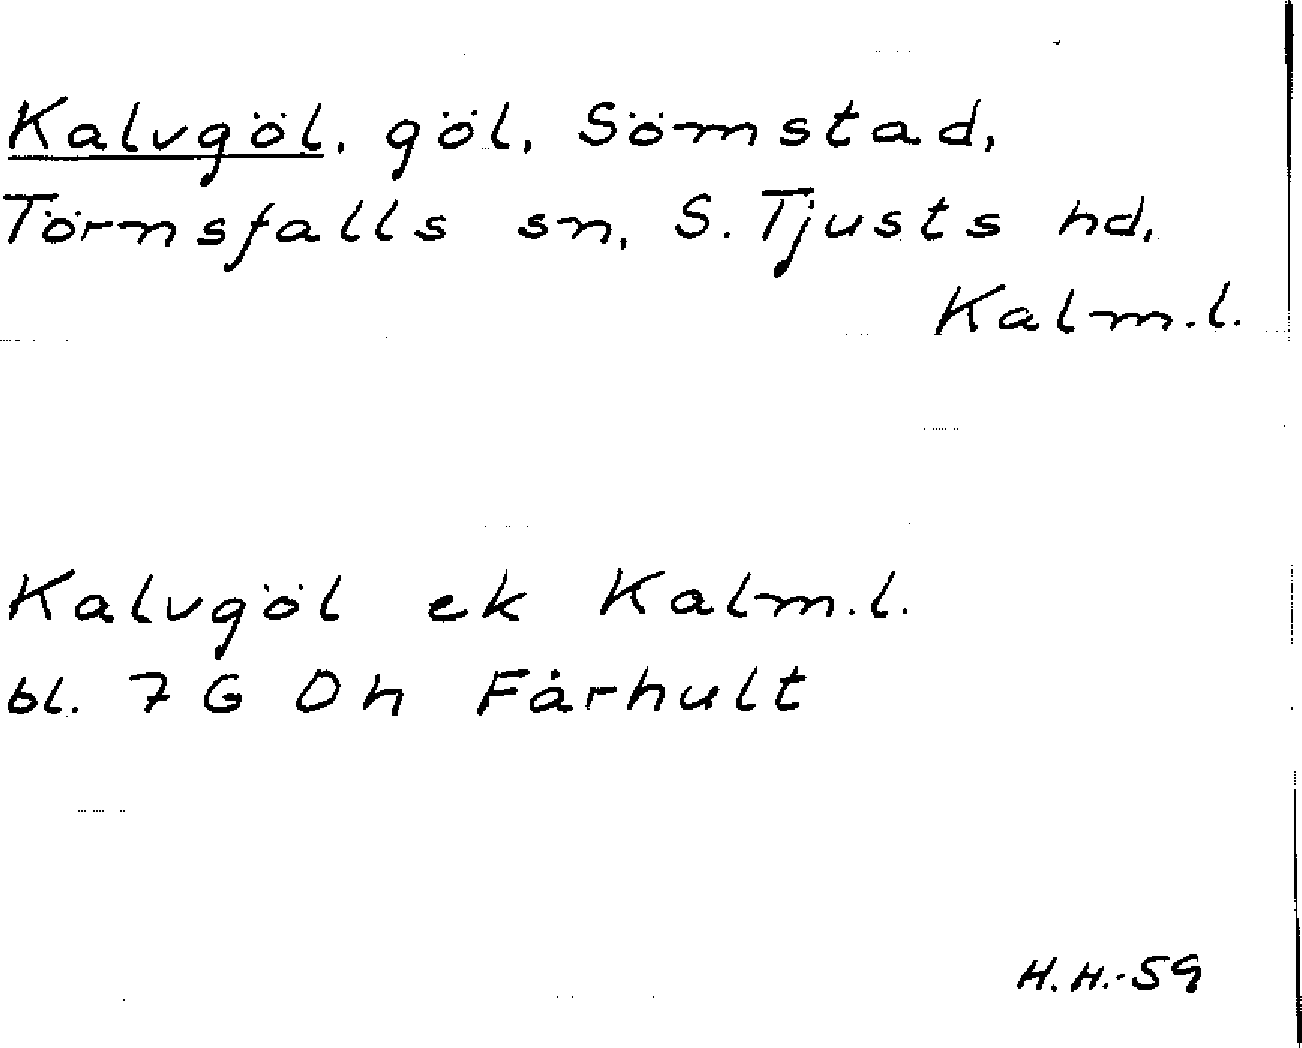 Kalvgöl, göl, Sömstad,
Törnsfalls sn, S. Tjusts hd,
Kalm.l.
Kalvgöl ek Kalm.l.
bl. 7 G 0h Fårhult
H.H.-59